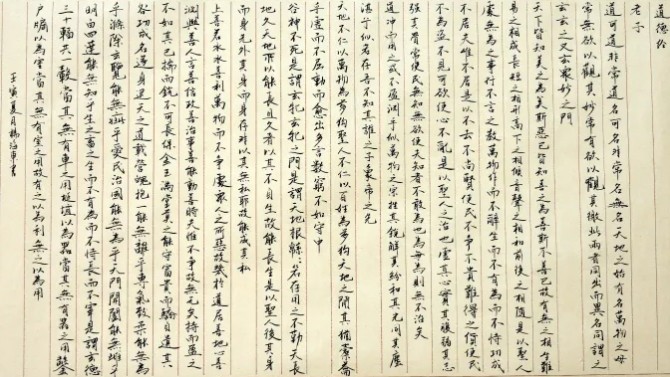 道德經
老子
道可道非常道名可名非常名無名天地之始有名萬物之母
常無欲以觀其妙常有欲以觀其徼此兩者同出而異名同謂之
玄玄之又玄衆妙之門
天下皆知美之為美斯惡已皆知善之為善斯不善已故有無之相生難
易之相成長短之相形高下之相傾音聲之相和前後之相隨是以聖人
處無為之事行不言之教萬物作而不辭生而不有為而不恃功成
不居夫唯不居是以不去不尚賢使民不爭不貴難得之貨使民
不為盜不見可欲使心不亂是以聖人之治也虛其心實其腹弱其志
強其骨常使民無知無欲使夫知者不敢為也為無為則無不治矣
道沖而用之或不盈淵乎似萬物之宗挫其銳解其紛和其光同其塵
湛兮似若存吾不知其誰之子象帝之先
天地不仁以萬物為芻狗聖人不仁以百姓為芻狗天地之間其猶橐籥
乎虛而不屈動而愈出多言數窮不如守中
谷神不死是謂玄牝玄牝之門是謂天地根綿綿若存用之不勤天長
地久天地所以能長且久者以其不自生故能長生是以聖人後其身
而身先外其身而身存非以其無私耶故能成其私
上善若水水善利萬物而不爭處衆人之所惡故幾於道居善地心善
淵與善人言善信政善治事善能動善時夫唯不爭故無尤矣持而盈之
不如其已揣而銳不可長保金玉滿堂莫之能守富貴而驕自遺其
咎功成名遂身退天之道載營魄抱一能無離乎專氣致柔能無為
乎滌除玄覽能無疵乎愛民治國能無為乎天門開闔能無雌乎
明白四達能無知乎生之畜之生而不有為而不恃長而不宰是謂玄德
三十輻共一轂當其無有車之用埏埴以為器當其無有器之用鑿
戶牖以為室當其無有室之用故有之以為利無之以為用
壬寅夏月楊海軍書